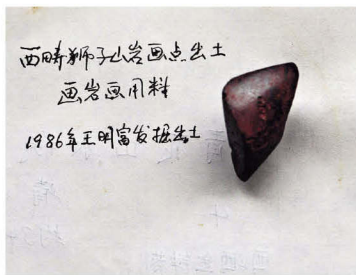 西畴狮子山岩画点出土
画岩画用料
1986年王明富发掘出土